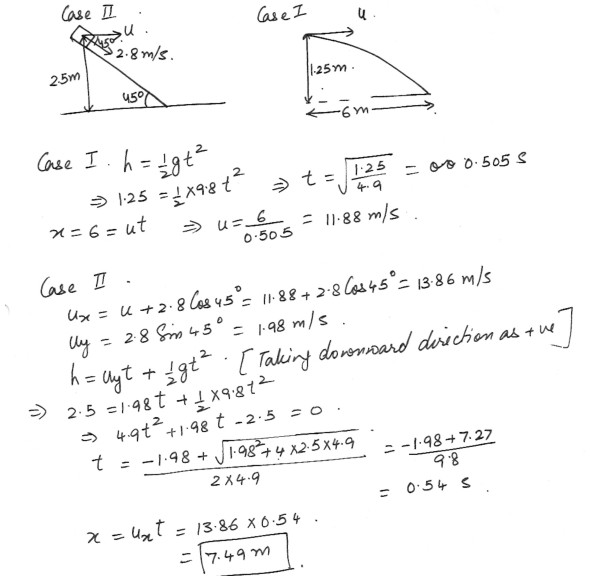 Case II
u
45°
2.8 m/s.
2.5m
45°
Case I
u.
1.25m.
6m
Case I. h = ½gt²
⇒ 1.25 = ½ × 9.8 t² ⇒ t = √(1.25/4.9) = 0.505 s
x = 6 = ut ⇒ u = 6/0.505 = 11.88 m/s.
Case II.
ux = u + 2.8 Cos 45° = 11.88 + 2.8 Cos 45° = 13.86 m/s
uy = 2.8 Sin 45° = 1.98 m/s.
h = uyt + ½gt². [Taking downward direction as +ve]
⇒ 2.5 = 1.98t + ½ × 9.8t²
⇒ 4.9t² + 1.98t - 2.5 = 0.
t = (-1.98 + √(1.98² + 4 × 2.5 × 4.9))/(2 × 4.9) = (-1.98 + 7.27)/9.8
= 0.54 s.
x = uxt = 13.86 × 0.54.
= 7.49 m.